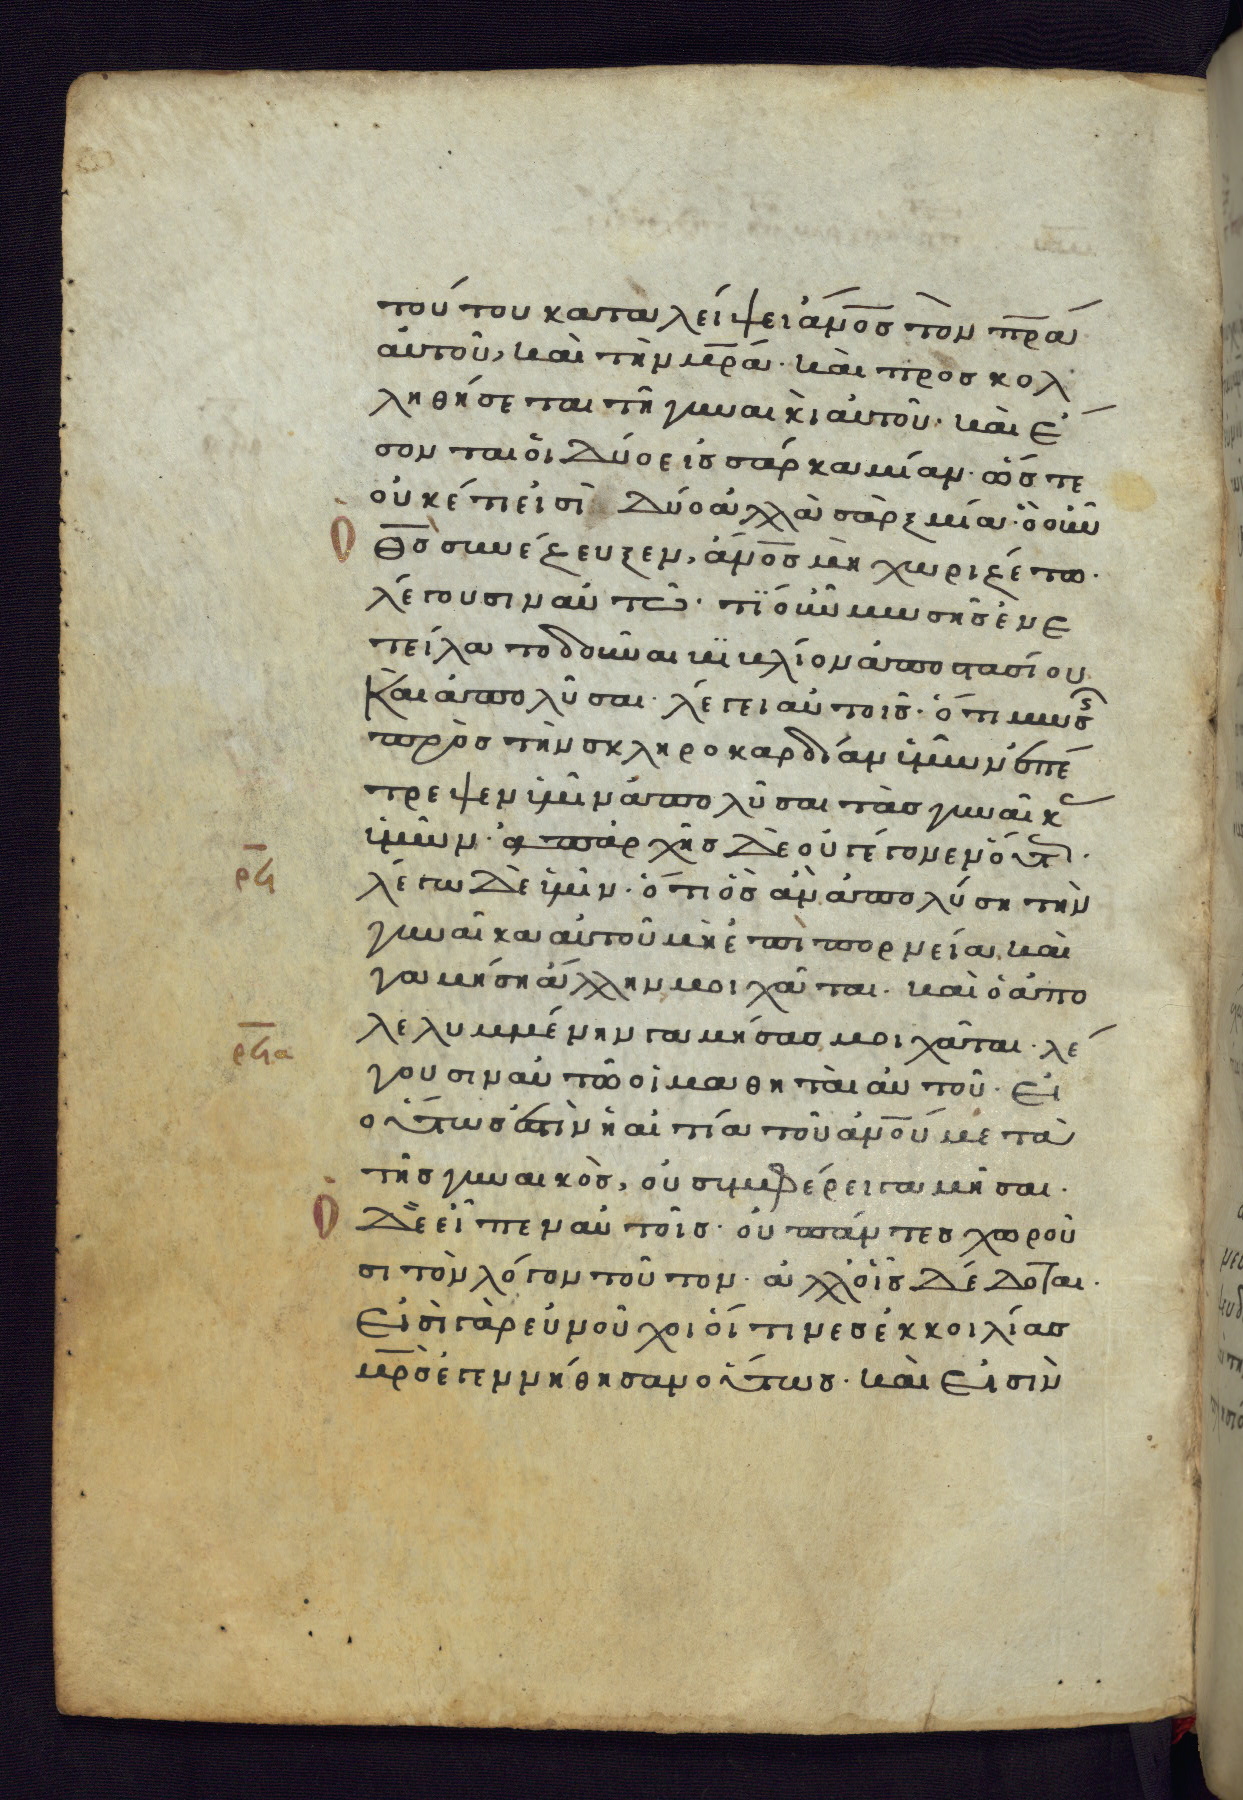 τούτου καταλείψει ἄν̅ο̅σ̅ τὸν π̅ρ̅α̅
αὐτοῦ, καὶ τὴν μ̅ρ̅α̅· καὶ προσκολ
ληθήσεται τῆ γυναικὶ αὐτοῦ· καὶ ἔ
σονται οἱ δύο εἰς σάρκα μίαν· ὥστε
οὐκέτι εἰσὶ δύο ἀλλὰ σὰρξ μία· ὃ οὖν
ὁ
θ̅σ̅ συνέζευξεν, ἄν̅ο̅σ̅ μὴ χωριζέτω·
λέγουσιν αὐτῶ· τί οὖν μωσῆς ἐνε
τείλατο δοῦναι βιβλίον ἀποστασίου
καὶ ἀπολῦσαι· λέγει αὐτοῖς· ὅτι μωσς
πρὸς τὴν σκληροκαρδίαν ὑμῶν ἐπέ
τρεψεν ὑμῖν ἀπολῦσαι τὰς γυναῖκ
ὑμῶν· ἀπαρχῆς δὲ οὐ γέγονεν οὕτ·
ρϟ
λέγω δὲ ὑμῖν· ὅτι ὃς ἂν ἀπολύση τὴν
γυναῖκα αὐτοῦ μὴ ἐπὶ πορνεία, καὶ
γαμήση ἄλλην μοιχᾶται· καὶ ὁ ἀπο
λελυμμένην γαμήσας μοιχᾶται· λέ
ρϟα
γουσιν αὐτῶ οἱ μαθηταὶ αὐτοῦ· εἰ
οὕτως ἐστὶν ἡ αἰτία τοῦ ἀν̅ο̅ύ̅ μετὰ
τῆς γυναικὸς, οὐ συμφέρει γαμῆσαι·
ὁ
δὲ εἶπεν αὐτοῖς· οὐ πάντες χωροῦ
σι τὸν λόγον τοῦτον· ἀλλ' οἷς δέδοται·
εἰσὶ γὰρ εὐνοῦχοι οἵτινες ἐκ κοιλίας
μ̅ρ̅σ̅ ἐγεννήθησαν οὕτως· καὶ εἰσὶν